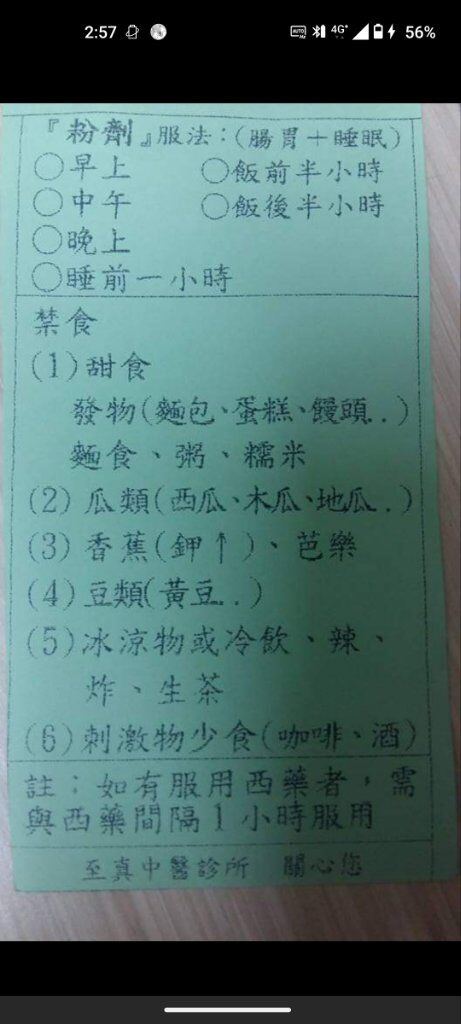 2:57 4G+ 56%
『粉劑』服法：(腸胃＋睡眠)
○早上 ○飯前半小時
○中午 ○飯後半小時
○晚上
○睡前一小時
禁食
(1)甜食
發物(麵包、蛋糕、饅頭..)
麵食、粥、糯米
(2)瓜類(西瓜、木瓜、地瓜..)
(3)香蕉(鉀↑)、芭樂
(4)豆類(黃豆..)
(5)冰涼物或冷飲、辣、
炸、生茶
(6)刺激物少食(咖啡、酒)
註：如有服用西藥者，需
與西藥間隔1小時服用
至真中醫診所 關心您